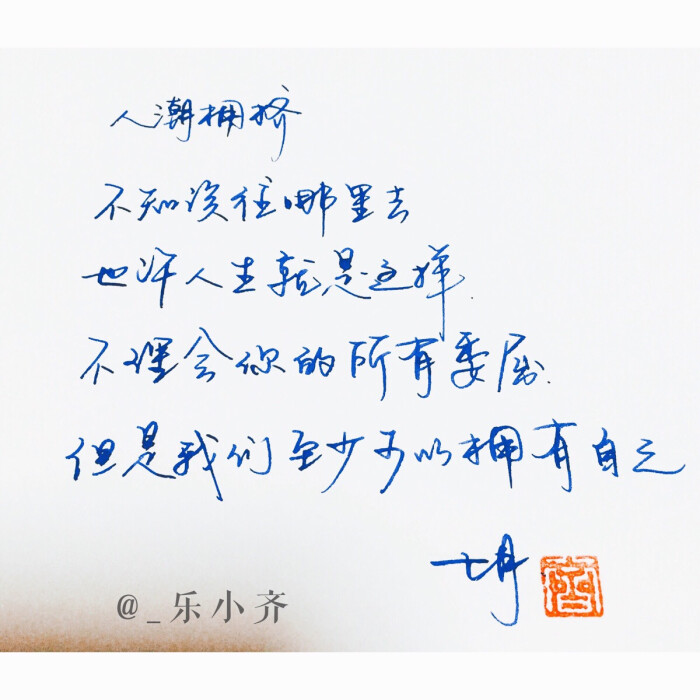 人潮拥挤
不知该往哪里去
也许人生就是这样.
不理会你的所有委屈.
但是我们至少可以拥有自己
七月
齊
@_乐小齐